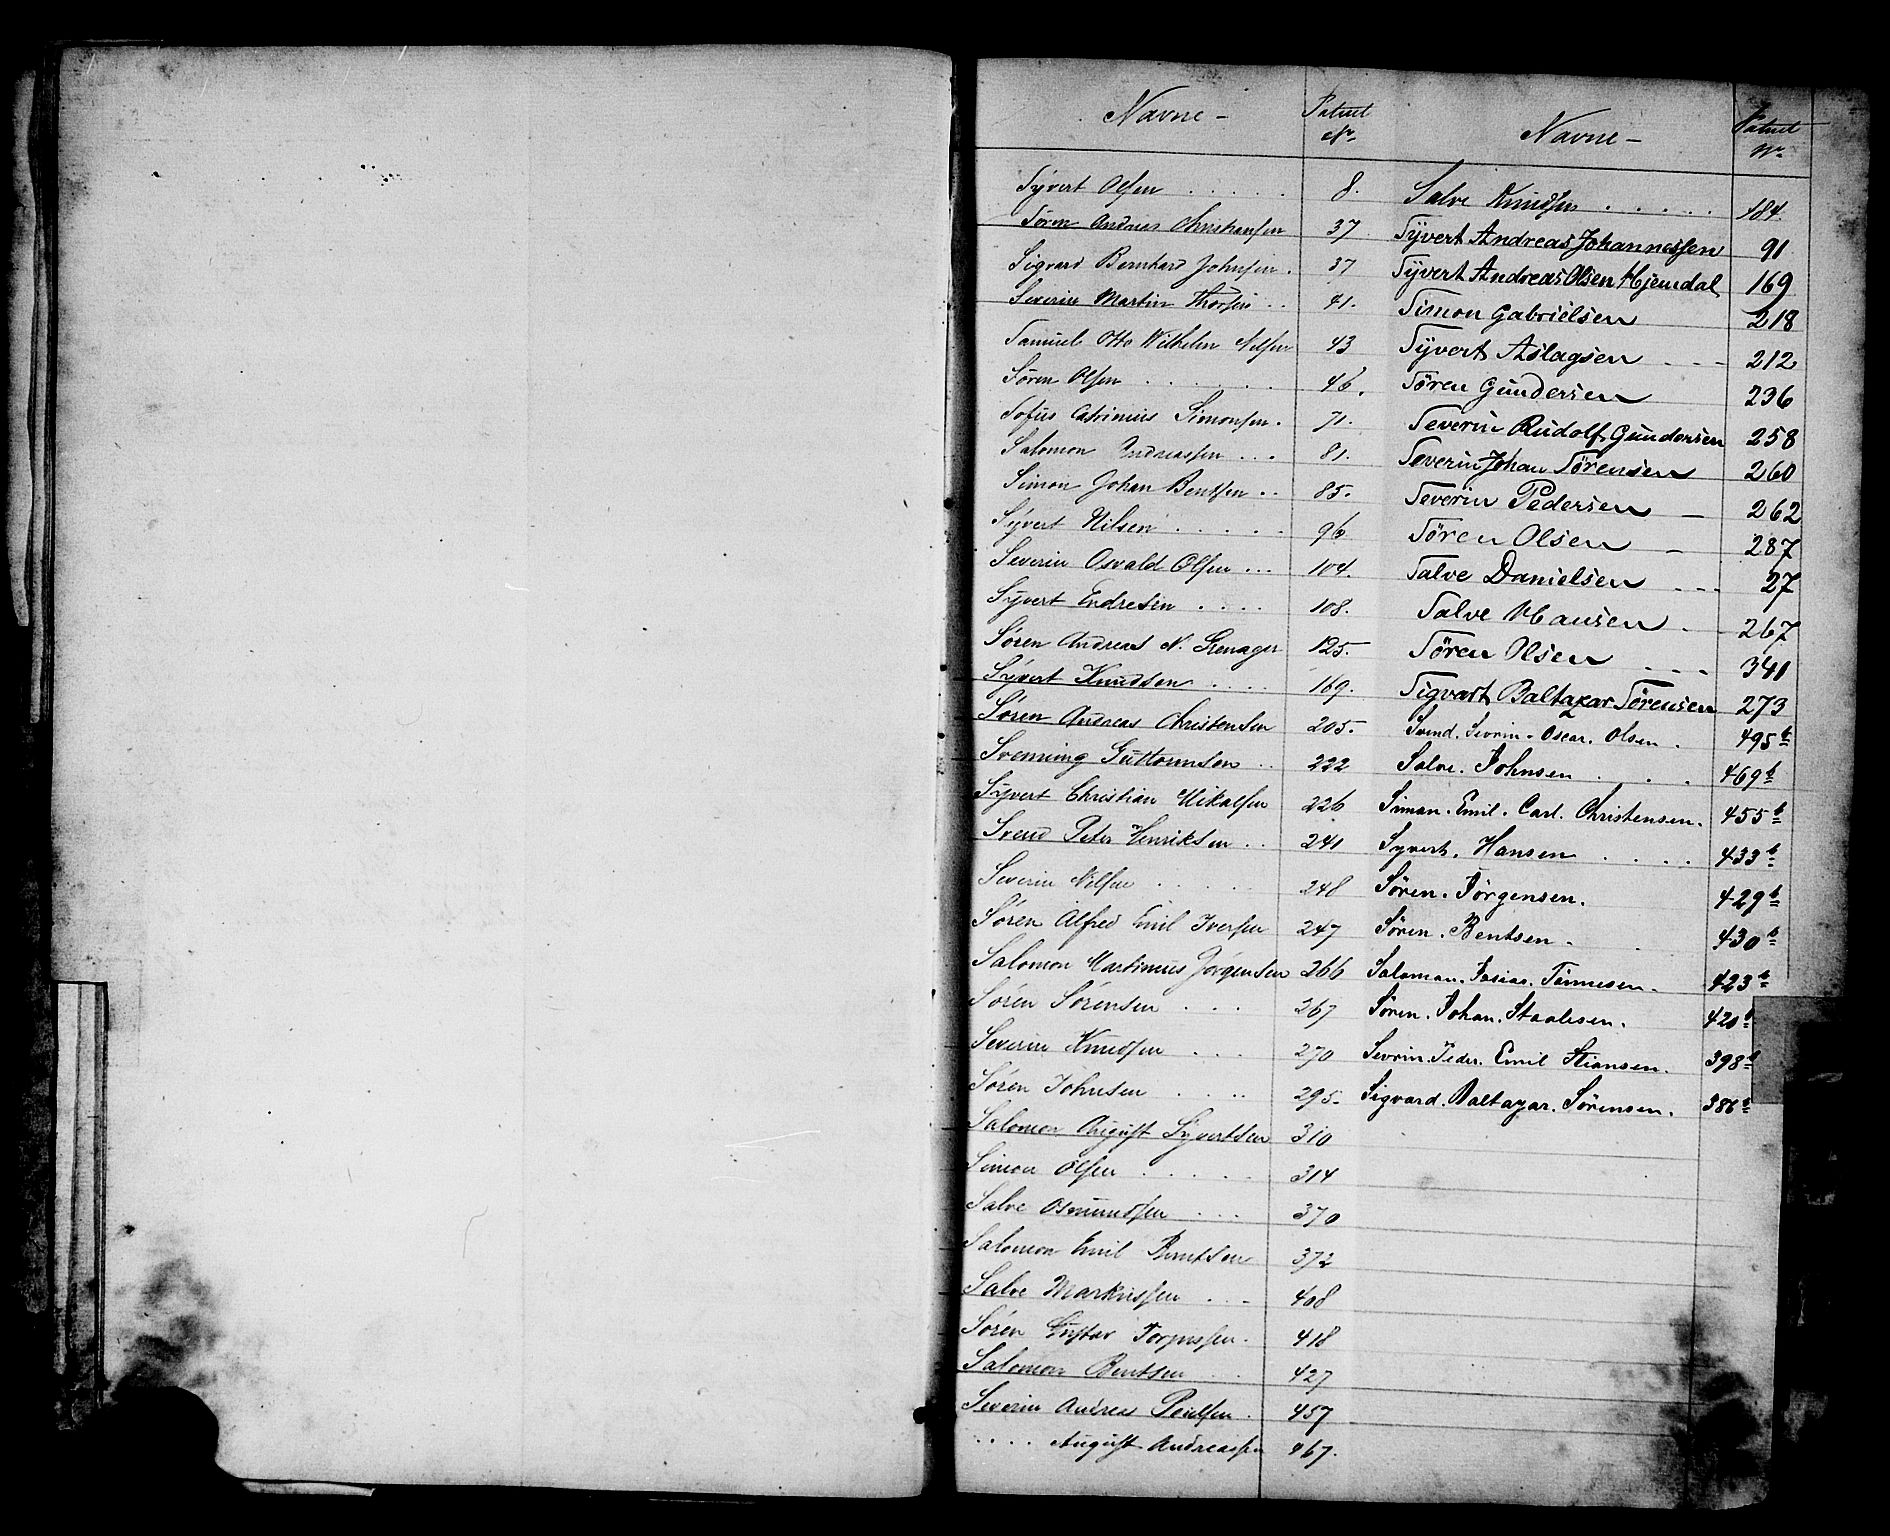 Navne -
Patent Nr.
Syvert Olsen . . . . . 8.
Sören Andreas Christiansen 37
Sigvard Bernhard Johnsen . 37
Severin Martin Thorsen . . 41.
Samuel Otto Wilhelm Nilsen 43
Sören Olsen . . . . . . 46.
Sofus Simonsen . 71.
Salomon Andreassen . . . 81.
Simon Johan Bentsen . . 85.
Syvert Nilsen . . . . . 96
Severin Osvald Olsen . . . 104.
Syvert Endresen . . . . 108.
Sören Andreas N. Grenager 125.
Syvert Knudsen . . . . 169.
Sören Andreas Christensen 205.
Svenning Guttormsen . . 222
Syvert Christian Mikalsen 226
Svend Peter Henriksen . . 241
Severin Nilsen . . . . 248
Sören Alfred Emil Iversen 247
Salomon Martinius Jørgensen 266
Sören Sörensen . . . 267
Severin Knudsen . . . 270
Sören Johnsen . . . . 295.
Salomon August Syvertsen 310
Simon Olsen . . . . . 314
Salve Osmundsen . . . 370
Salomon Emil Berntsen 372
Salve Markussen . . . 408
Sören Gustav Torjussen . 418
Salomon Bentsen . . 427
Severin Andreas Poulsen . 457
. . . . August Andreassen 467.
Navne -
Patent Nr.
Salve Knudsen . . . . . 184.
Syvert Andreas Johannessen 91
Syvert Andreas Olsen Hjemdal 169
Simon Gabrielsen 218
Syvert Aslagsen - - - 212
Sören Gundersen 236
Severin Rudolf Gundersen 258
Severin Johan Sörensen 260
Severin Pedersen - 262
Sören Olsen - 287
Salve Danielsen - - - 27
Salve Hansen - - 267
Sören Olsen - - - 341
Sigvart Baltazar Sörensen 273
Svend. Sevrin - Oscar. Olsen . 495 b
Salve. Johnsen . . . . 469 b
Simon. Emil. Carl. Christensen. 455 b
Syvert. Hansen . . . . 433 b
Sören. Jörgensen. 429 b
Sören. Bentsen . . 430 b
Saloman. Josias. Tönnesen. 423 b
Sören. Johan. Staalesen. 420 b
Sevrin. Peder. Emil Stiansen. 398 b
Sigvard. Baltazar. Sörensen. 386 b